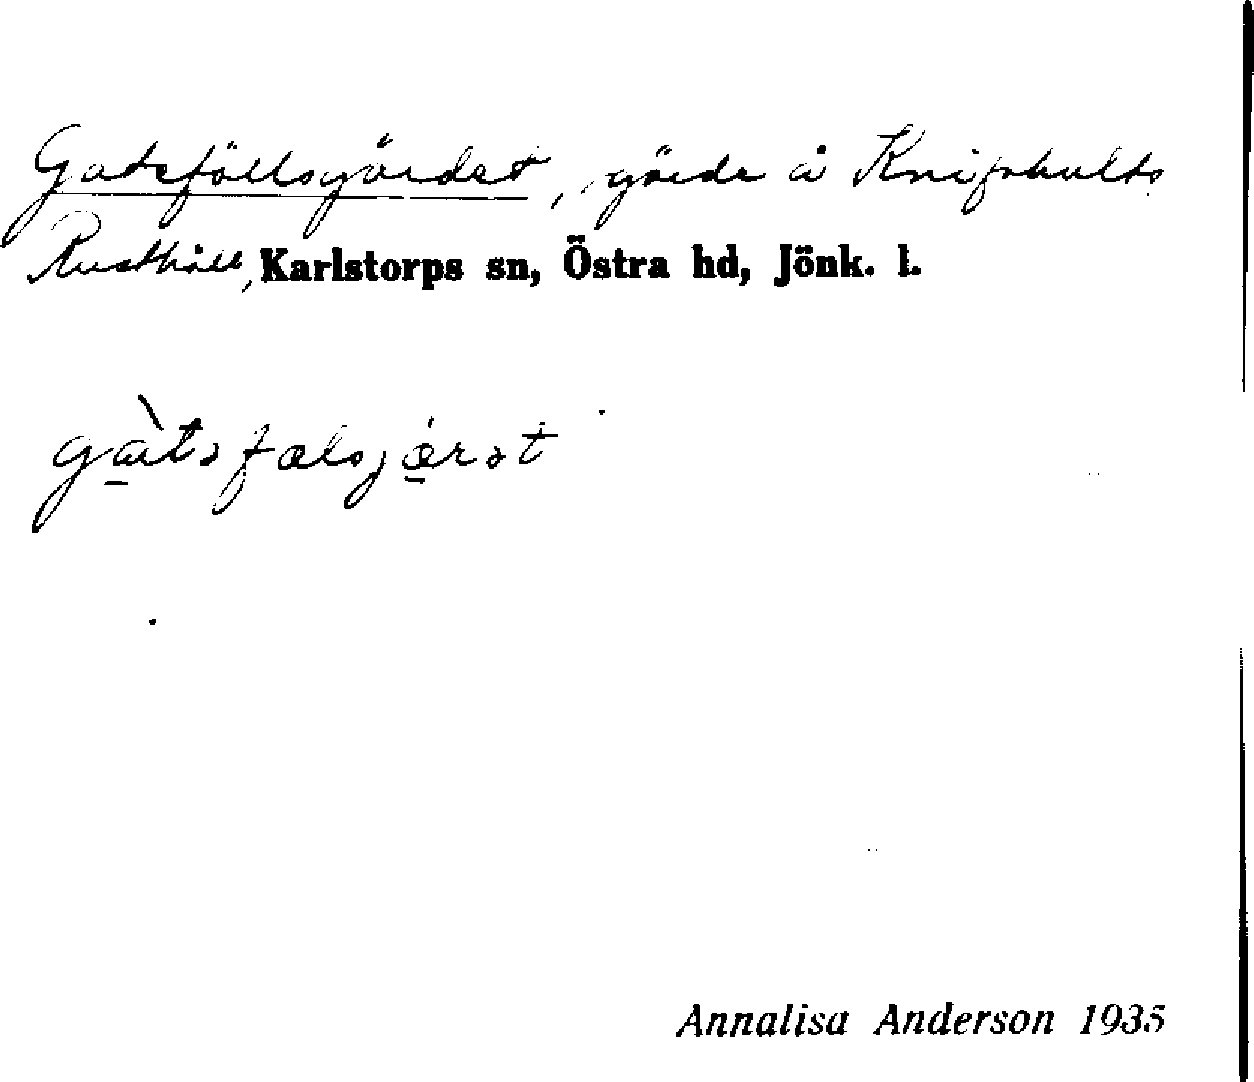 Gatsfällsgärdet, gärde å Knifshults
Rusthåll, Karlstorps sn, Östra hd, Jönk. l.
Annalisa Anderson 1935